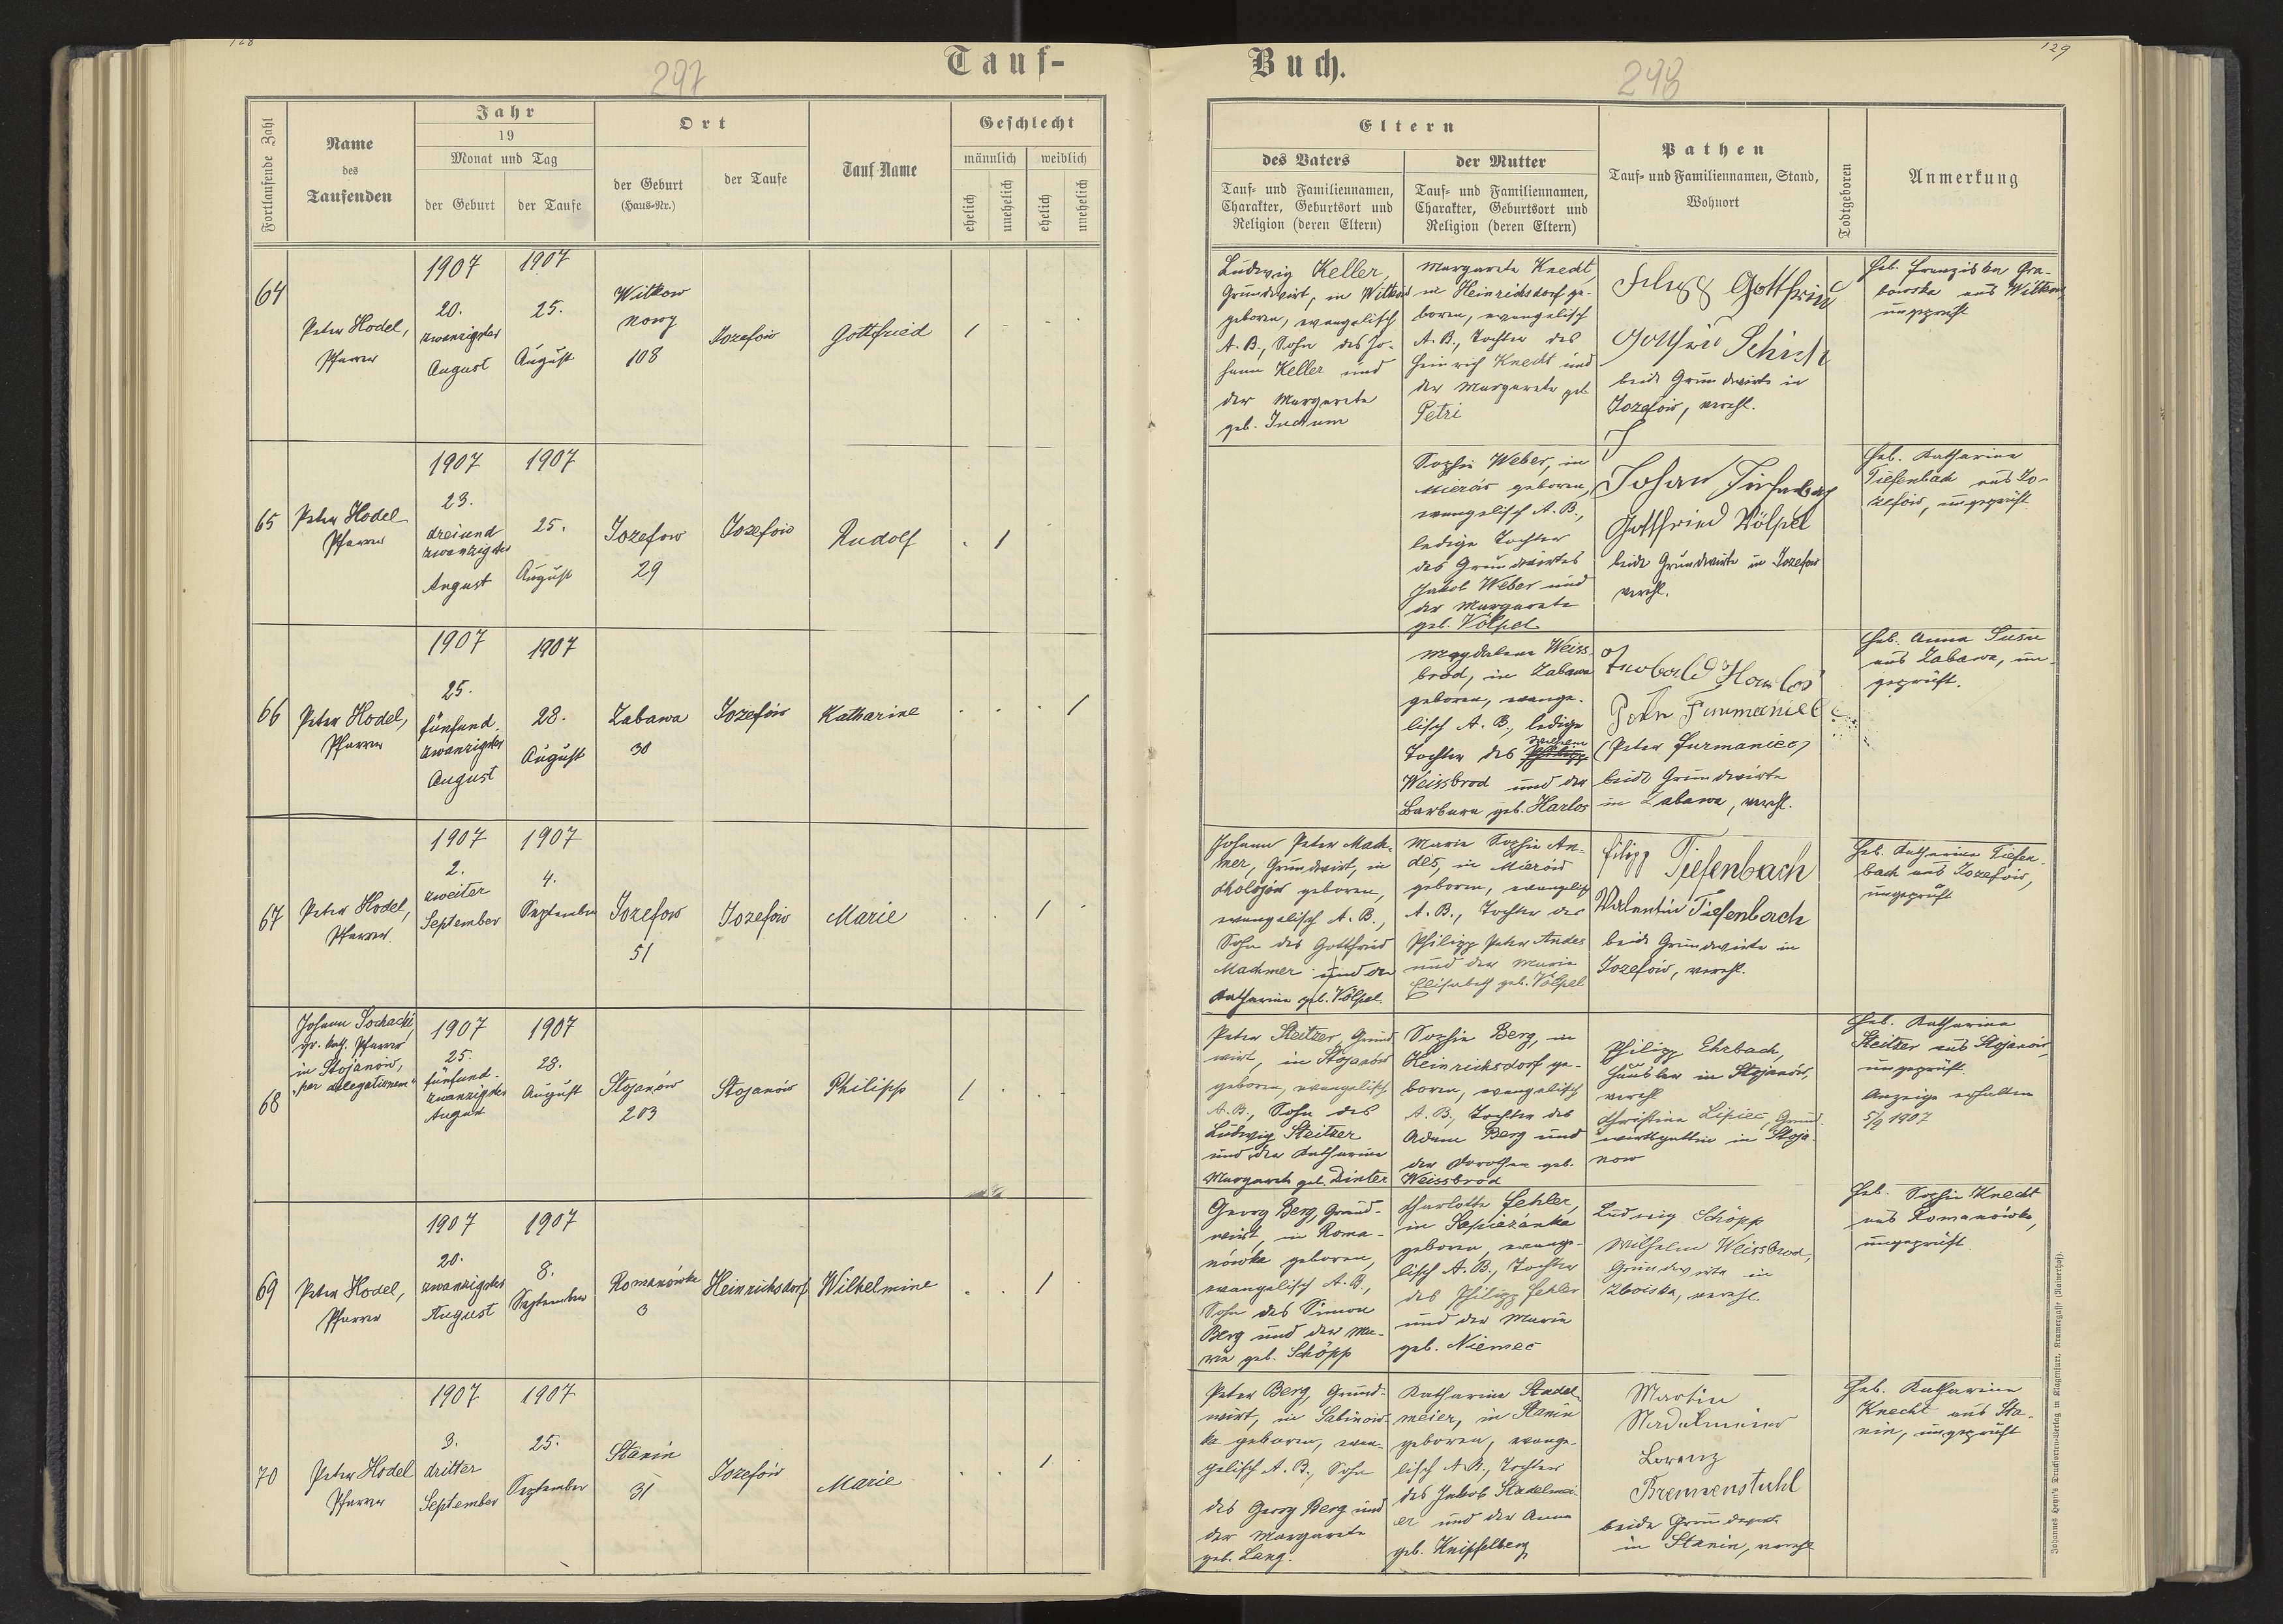 128
Tauf-
297
Fortlaufende Zahl
Name
des
Taufenden
Jahr
19
Monat und Tag
der Geburt
der Taufe
Ort
der Geburt
(Haus-Nr.)
der Taufe
Tauf-Name
Geschlecht
männlich
weiblich
ehelich
unehelich
ehelich
unehelich
64
Peter Hodel,
Pfarrer
1907
20.
zwanzigster
August
1907
25.
August
Witkow
nowy
108
Jozefów
Gottfried
1
65
Peter Hodel
Pfarrer
1907
23.
dreiund
zwanzigster
August
1907
25.
August
Jozefow
29
Jozefów
Rudolf
1
66
Peter Hodel,
Pfarrer
1907
25.
fünfund-
zwanzigster
August
1907
28.
August
Zabawa
30
Jozefów
Katharine
1
67
Peter Hodel,
Pfarrer
1907
2.
zweiter
September
1907
4.
September
Jozefow
51
Jozefów
Marie
1
68
Johann Sochacki,
gr. kath. Pfarrer
in Stojanów,
"per delegationem"
1907
25.
fünfund-
zwanzigster
August
1907
28.
August
Stojanów
203
Stojanów
Philipp
1
69
Peter Hodel,
Pfarrer
1907
20.
zwanzigster
August
1907
8.
September
Romanówka
3
Heinrichsdorf
Wilhelmine
1
70
Peter Hodel
Pfarrer
1907
3.
dritter
September
1907
25.
September
Stanin
31
Jozefów
Marie
1
Buch.
298
129
Eltern
des Vaters
Tauf- und Familiennamen,
Charakter, Geburtsort und
Religion (deren Eltern)
der Mutter
Tauf- und Familiennamen,
Charakter, Geburtsort und
Religion (deren Eltern)
Pathen
Tauf- und Familiennamen, Stand,
Wohnort
Todtgeboren
Anmerkung
Ludwig Keller,
Grundwirt, in Witkow
geboren, evangelisch
A. B., Sohn des Jo-
hann Keller und
der Margarete
geb.
Margarete Knecht,
in Heinrichsdorf ge-
boren, evangelisch
A. B., Tochter des
Heinrich Knecht und
der Margarete geb.
Petri
Filipp Gottfried
Gottfried
beide Grundwirte in
Jozefów, verehl.
Heb. Franziska Gra-
bowska aus Witkow,
ungeprüft
Sophie Weber, in
Mierów geboren,
evangelisch A. B.,
ledige Tochter
des Grundwirtes
Jakob Weber und
der Margarete
geb. Völpel
Johan Tiefenbach
Gottfried Völpel
beide Grundwirte in Jozefow
verehl.
Heb. Katharine
Tiefenbach aus Jo-
zefów, ungeprüft
Magdalene Weiss-
brod, in Zabawa
geboren, evange-
lisch A. B., ledige
Wilhelm
Tochter des Philipp
Weissbrod und der
Barbara geb. Harlos
Harlos
Furmaniec
(Peter Furmaniec)
beide Grundwirte
in Zabawa, verehl.
Heb. Anna
aus Zabawa, un-
geprüft.
Johann Peter Mach-
mer, Grundwirt, in
Chołojów geboren,
evangelisch A. B.,
Sohn des Gottfried
Machmer und der
Katharine geb. Völpel.
Marie Sophie An-
des, in Mierów
geboren, evangelisch
A. B., Tochter des
Philipp Peter Andes
und der Marie
Elisabeth geb. Völpel
Filipp Tiefenbach
Valentin Tiefenbach
beide Grundwirte in
Jozefów, verehl.
Heb. Katharine Tiefen-
bach aus Jozefów,
ungeprüft
Peter Steitzer, Grund-
wirt, in Stojanów
geboren, evangelisch
A. B., Sohn des
Ludwig Steitzer
und der Katharine
Margarete geb. Dinter
Sophie Berg, in
Heinrichsdorf ge-
boren, evangelisch
A. B., Tochter des
Adam Berg und
der Dorothea geb.
Weissbrod
Philipp Ehrbach,
Häusler in Stojanów,
verehl
Christine Lipiec, Grund-
wirtsgattin in Stoja-
now
Heb. Katharina
Steitzer aus Stojanów,
ungeprüft.
Anzeige erhalten
5/9 1907
Georg Berg, Grund-
wirt, in Roma-
nówka geboren,
evangelisch A. B.,
Sohn des Simon
Berg und der Ma-
rie geb. Schöpp
Charlotte Fehler,
in Sapiezanka
geboren, evange-
lisch A. B., Tochter
des Philipp Fehler
und der Marie
geb. Niemec
Ludwig Schöpp
Wilhelm Weissbrod,
Grundwirte in
Zboiska, verehl.
Heb. Sophie Knecht
aus Romanówka,
ungeprüft
Peter Berg, Grund-
wirt, in Sabinow-
ka geboren, evan-
gelisch A. B., Sohn
des Georg Berg und
der Margarete
geb. Lang.
Katharine Stadel-
meier, in Stanin
geboren, evange-
lisch A. B., Tochter
des Jakob Stadelmei-
er und der Anna
geb. Knipfelberg
Martin
Stadelmeier
Lorenz
Bremenstuhl
beide Grundwirte
in Stanin, verehl
Heb. Katharine
Knecht aus Sta-
nin, ungeprüft
Johannes Heyn's Drucksorten-Verlag in Klagenfurt, Kramergasse (Rainerhof).